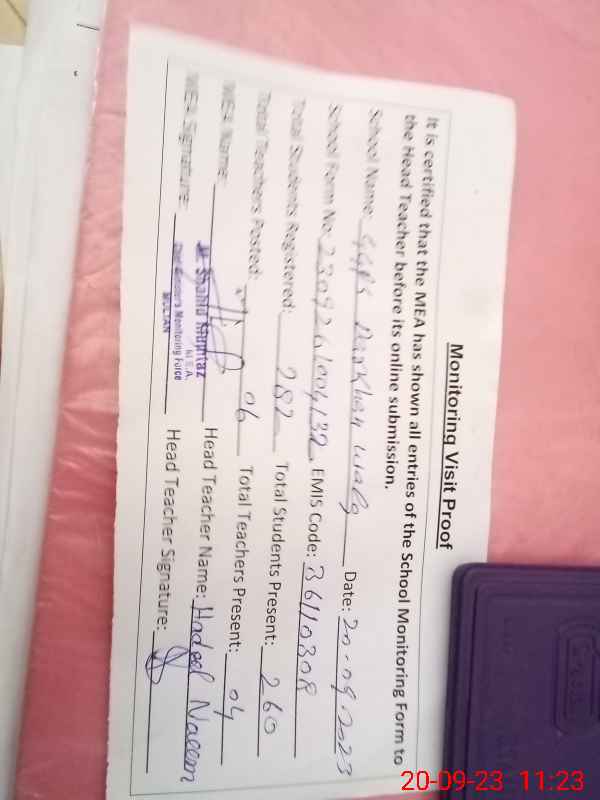 Monitoring Visit Proof
It is certified that the MEA has shown all entries of the School Monitoring Form to
the Head Teacher before its online submission.
School Name: GGPS Date: 20-09-2023
School Form No: 2309261004132, EMIS Code: 36110308
Total Students Registered: 282 Total Students Present: 260
Total Teachers Posted: 06 Total Teachers Present: 04
MEA Name: Head Teacher Name: Hadeel Naeem
MEA Signature: Head Teacher Signature:
M. Shahid Mumtaz
M.E.A.
Chief Minister's Monitoring Force
MULTAN
20-09-23 11:23